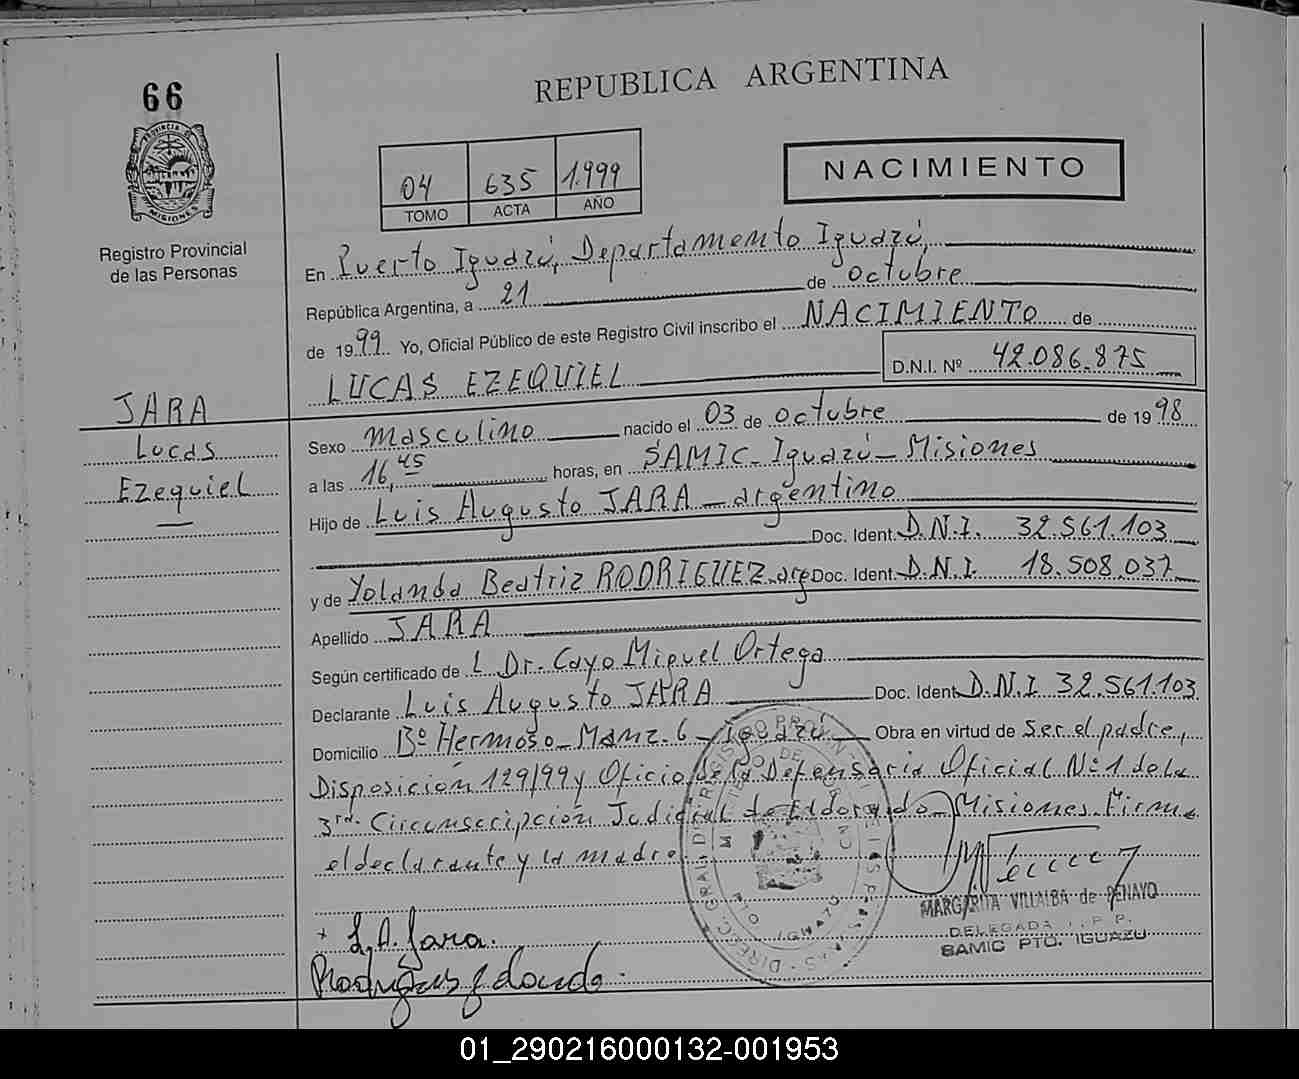 66
REPUBLICA ARGENTINA
PROVINCIA DE
MISIONES
Registro Provincial
de las Personas
04 635 1.999
TOMO ACTA AÑO
NACIMIENTO
En Puerto Iguazú, Departamento Iguazú,
República Argentina, a 21 de octubre
de 1999 Yo, Oficial Público de este Registro Civil inscribo el NACIMIENTO de
LUCAS EZEQUIEL D.N.I. Nº 42.086.875
JARA
Lucas
Ezequiel
Sexo masculino nacido el 03 de octubre de 1998
a las 16,45 horas, en SAMIC_Iguazú_Misiones
Hijo de Luis Augusto JARA_argentino
Doc. Ident. D.N.I. 32.561.103
y de Yolanda Beatriz RODRIGUEZ_arg Doc. Ident. D.N.I. 18.508.037
Apellido JARA
Según certificado de l Dr. Cayo Miguel Ortega
Declarante Luis Augusto JARA Doc. Ident. D.N.I 32.561.103
Domicilio Bº Hermoso_Manz.6_Iguazú Obra en virtud de ser el padre,
Disposición 129/99 y Oficio de la Defensoria Oficial Nº1 de la
3ra. Circunscripción Judicial de Eldorado_Misiones. Firma
el declarante y la madre
MARGARITA VILLALBA de PENAYO
DELEGADA
SAMIC PTO. IGUAZU
+ L.A. Jara.
01_290216000132-001953